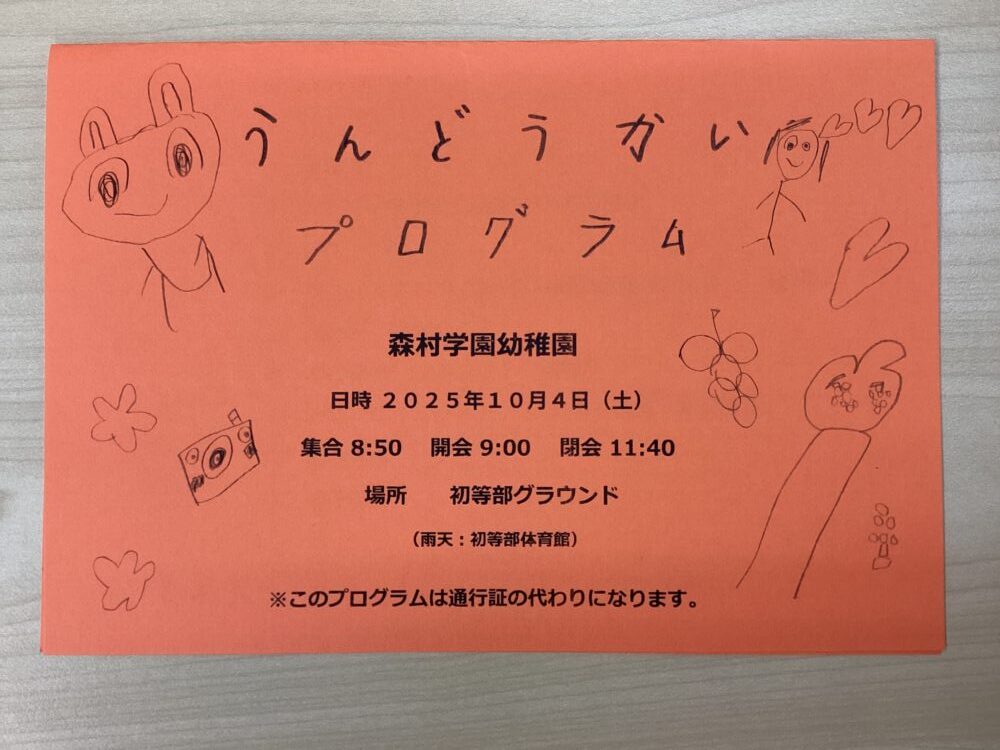 うんどうかい
プログラム
森村学園幼稚園
日時 2025年10月4日（土）
集合 8:50　開会 9:00　閉会 11:40
場所　初等部グラウンド
（雨天：初等部体育館）
※このプログラムは通行証の代わりになります。